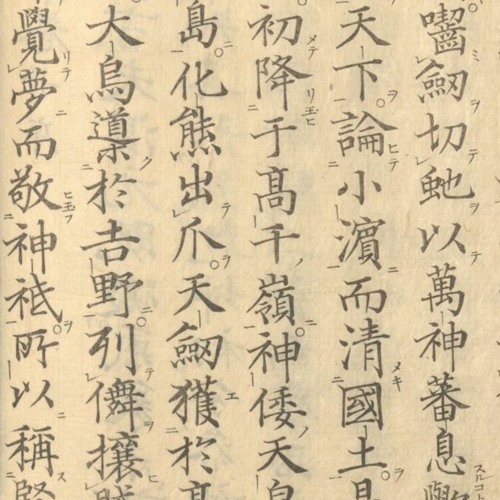 囓劒切虵以萬神蕃息歟
天下論小濵而清國土
初降于髙千嶺神倭天皇
島化熊出爪天劒獲於髙
大烏導於吉野列儛攘賊
覺夢而敬神祇所以稱賢